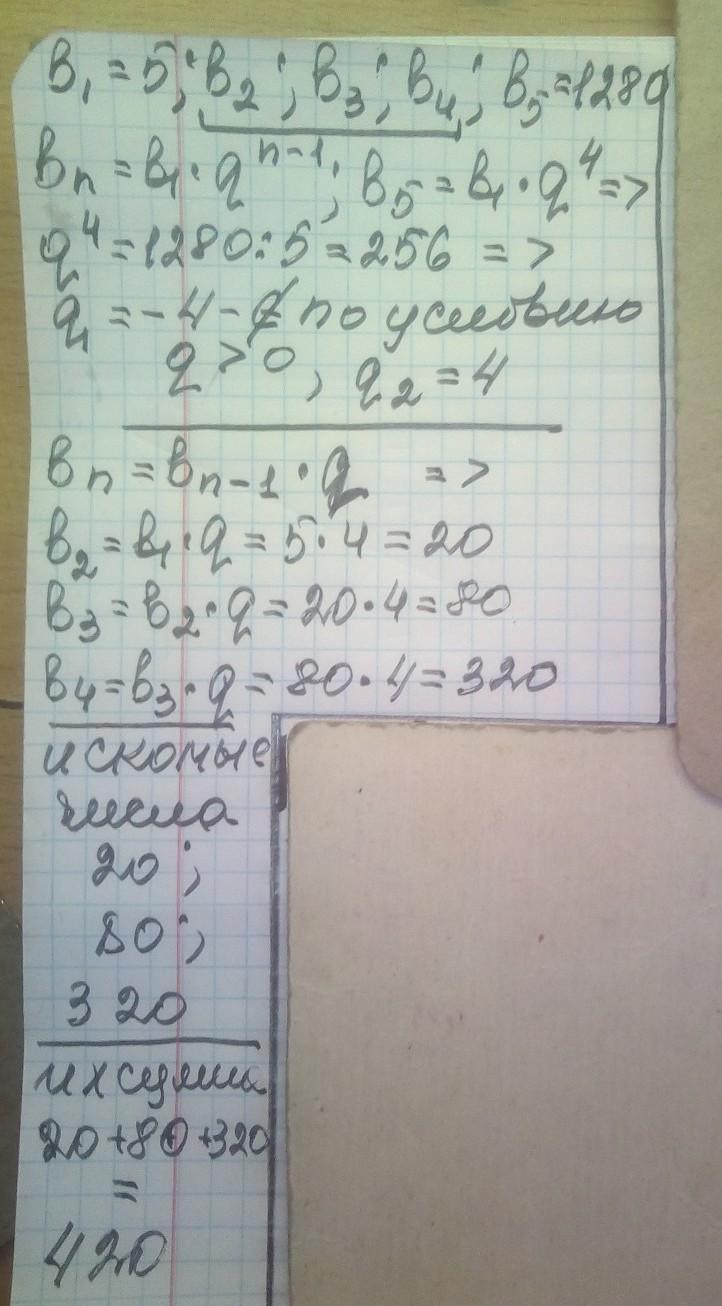 в₁ = 5; в₂; в₃; в₄; в₅ = 1280
вₙ = в₁ · qⁿ⁻¹; в₅ = в₁ · q⁴ =>
q⁴ = 1280 : 5 = 256 =>
q₁ = -4 - ∉ по условию
q > 0, q₂ = 4
вₙ = вₙ₋₁ · q =>
в₂ = в₁ · q = 5 · 4 = 20
в₃ = в₂ · q = 20 · 4 = 80
в₄ = в₃ · q = 80 · 4 = 320
искомые
числа
20;
80;
320
их сумма
20 + 80 + 320
=
420